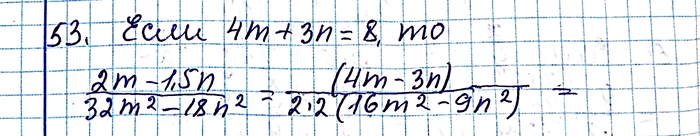 53. Если 4m + 3n = 8, то
(2m - 1,5n)/(32m² - 18n²) = (4m - 3n)/(2·2(16m² - 9n²)) =